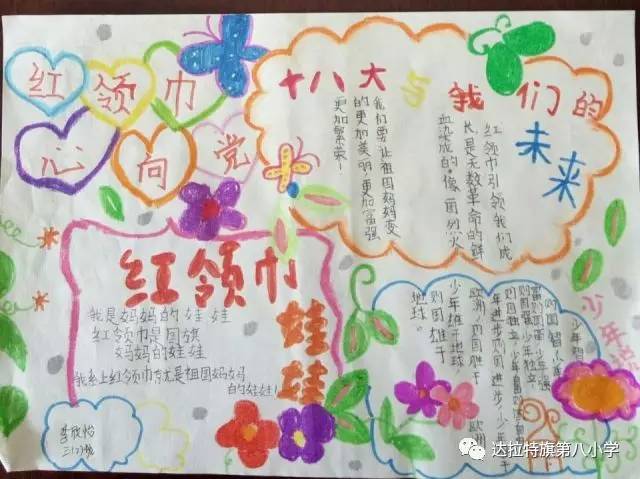 红领巾
心向党
十八大与我们的
未来
红领巾引领我们成
长是无数革命的鲜
血染成的。像
烈火
我们要让祖国妈妈变
的更加美丽更加富强
更加繁荣！
红领巾
娃娃
我是妈妈的娃娃
红领巾是国旗
妈妈的娃娃
我系上红领巾就是祖国妈妈
的娃娃！
少年说
少年强
则国强少年独立
则国独立
年进步则国进步
欧洲则国雄于
少年雄于地球
则国雄于
地球。
李欣怡
三(7)班
达拉特旗第八小学